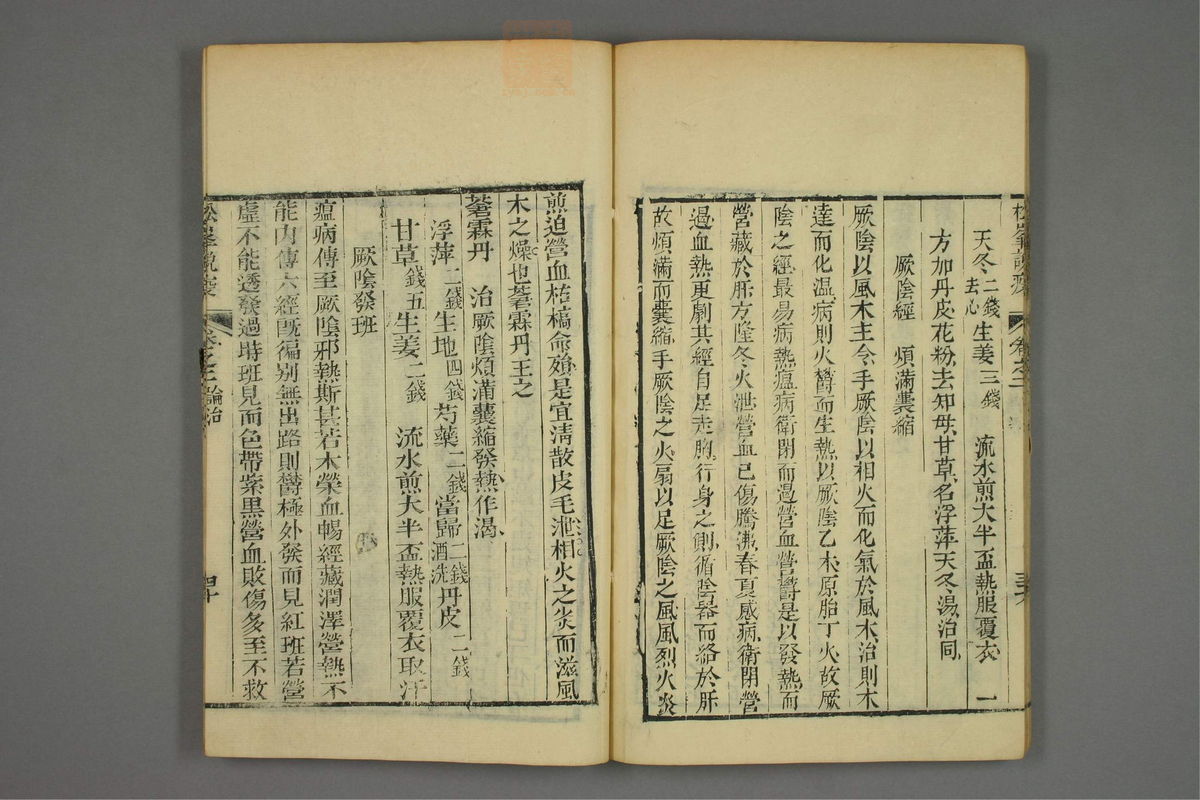 松峯說疫
卷之三
天冬二錢去心 生姜三錢 流水煎大半盃熱服覆衣 一
方加丹皮花粉去知母甘草名浮萍天冬湯治同
厥陰經 煩滿囊縮
厥陰以風木主令手厥陰以相火而化氣於風木治則木
達而化温病則火鬱而生熱以厥陰乙木原胎丁火故厥
陰之經最易病熱瘟病衛閉而遏營血營鬱是以發熱而
營藏於肝方隆冬火泄營血已傷騰沸春夏感病衛閉營
遏血熱更劇其經自足走胸行身之側循陰器而絡於肝
故煩滿而囊縮手厥陰之火扇以足厥陰之風風烈火炎
煎迫營血枯槁命殞是宜清散皮毛泄相火之炎而滋風
木之燥也苓霖丹王之
苓霖丹 治厥陰煩滿囊縮發熱作渴
浮萍二錢生地四錢芍藥二錢當歸二錢酒洗丹皮二錢
甘草錢五生姜二錢 流水煎大半盃熱服覆衣取汗
厥陰發班
瘟病傳至厥陰邪熱斯甚若木榮血暢經藏潤澤營熱不
能內傳六經既徧別無出路則鬱極外發而見紅班若營
虛不能透發過時班見而色帶紫黑營血敗傷多至不救
松峯說疫
卷之三 論治
四十